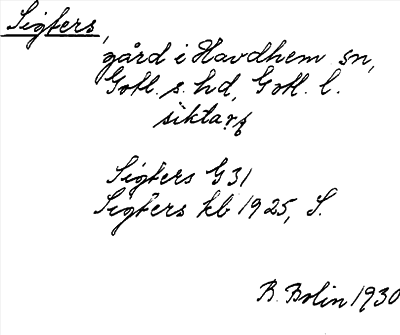 Sigfers,
gård i Havdhem sn,
Gotl. s. hd, Gotl. l.
Sigfers G 31
Sigfers kb 1925, S.
B. Bolin 1930